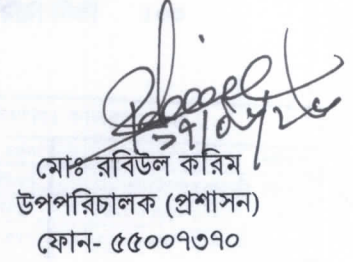 মোঃ রবিউল করিম
উপপরিচালক (প্রশাসন)
ফোন- ৫৫০০৭৩৭০